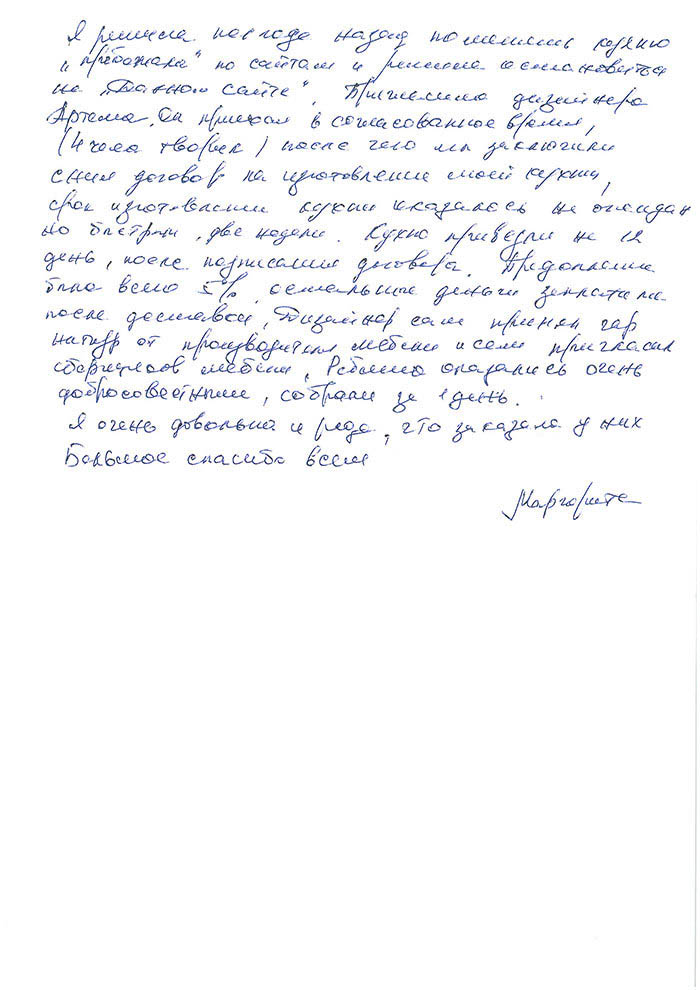 Я решила пол года назад поменять кухню
„пробежала" по сайтам и решила остановиться
на „Данном сайте". Пригласила дизайнера
Артема. Он приехал в согласованное время,
(4 часа творил) после чего мы заключили
с ним договор на изготовление моей кухни,
срок изготовления кухни оказалось не ожидан
но быстрый, две недели. Кухню привезли на 12
день, после подписания договора. Предоплата
была всего 5%, остальные деньги заплатили
после доставки. Дизайнер сам принял гар
нитур от производителя мебели и сам пригласил
сборщиков мебели. Ребята оказались очень
добросовестными, собрали за 1 день.
Я очень довольна и рада, что заказала у них
Большое спасибо всем
Маргарита